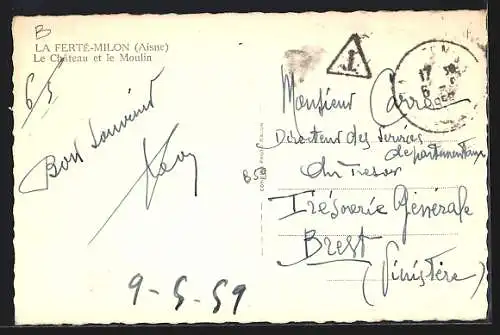 B
LA FERTÉ-MILON (Aisne)
Le Château et le Moulin
65
Bon souvenir
9-5-59
B50
T
17
6
Monsieur Carro
Directeur des Services
départementaux
du Tresor
Trésorerie Générale
Brest
(Finistère)